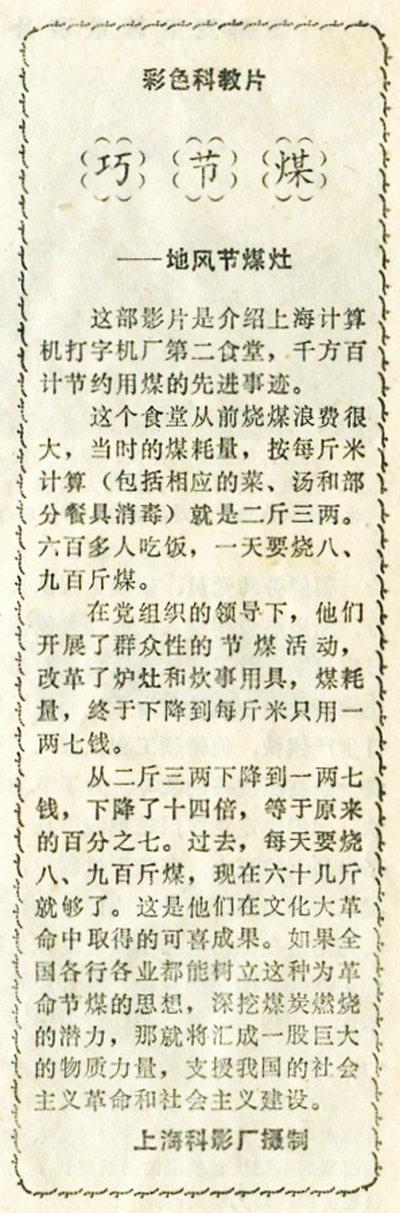 彩色科教片
巧节煤
——地风节煤灶
这部影片是介绍上海计算
机打字机厂第二食堂，千方百
计节约用煤的先进事迹。
这个食堂从前烧煤浪费很
大，当时的煤耗量，按每斤米
计算（包括相应的菜、汤和部
分餐具消毒）就是二斤三两。
六百多人吃饭，一天要烧八、
九百斤煤。
在党组织的领导下，他们
开展了群众性的节煤活动，
改革了炉灶和炊事用具，煤耗
量，终于下降到每斤米只用一
两七钱。
从二斤三两下降到一两七
钱，下降了十四倍，等于原来
的百分之七。过去，每天要烧
八、九百斤煤，现在六十几斤
就够了。这是他们在文化大革
命中取得的可喜成果。如果全
国各行各业都能树立这种为革
命节煤的思想，深挖煤炭燃烧
的潜力，那就将汇成一股巨大
的物质力量，支援我国的社会
主义革命和社会主义建设。
上海科影厂摄制